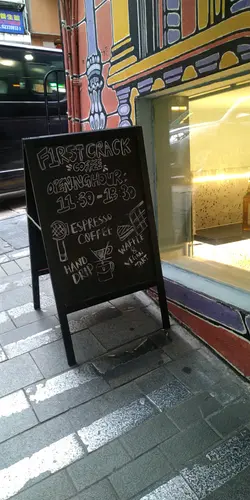 FIRST CRACK
COFFEE
OPENING HOUR:
11:30 - 18:30
ESPRESSO
COFFEE
HAND
DRIP
WAFFLE